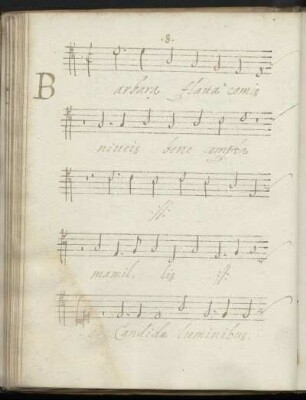 ·8·
Barbara flaua comis
niueis bene compta
:||:
mamil lis :||:
Candida luminibus.